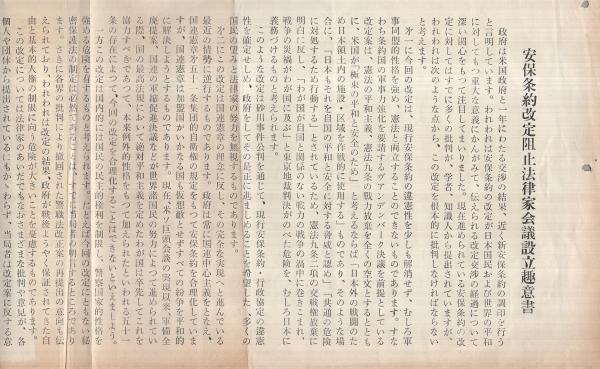 安保条約改定阻止法律家会議設立趣意書
政府は米国政府と一年にわたる交渉の結果、近く新安保条約の調印を行う
と言明しています。われわれは安保条約の改定が日本国民および世界の平和
に対してもつ重大な意義にかんがみて、伝えられる改定交渉の経過について
深い関心をもって注目してまいりました。現在進められている安保条約の改
定に対してはすでに多くの批判が、学者、知識人から提出されていますが、
われわれは次のような点から、この改定を根本的に批判しなければならない
と考えます。
才一に今回の改定は、現行安保条約の違憲性を少しも解消せず、むしろ軍
事同盟的性格を強め、憲法と両立することのできないものであります。すな
わち条約国の軍事力強化を要請するヴァンデンバーク決議を前提としている
改定案は、憲法の平和主義、憲法九条の戦力放棄を全くの空文とするととも
に、米国が「極東の平和と安全のため」と考えるならば「日本国外の戦闘のた
め日本領土内の施設・区域を作戦的に使用する」ものであり、そのような場
合に、「日本もそれを自国の平和と安全に対する脅威と認め」「共通の危険
に対処するため行動する」とされているため、憲法九条二項の交戦権放棄に
明白に反し、「わが国が自国と関係のない戦力の戦争の渦中に巻きこまれ、
戦争の災禍がわが国に及ぶ」と東京地裁判決がのべた危険を、むしろ日本に
義務づけるものと考えられます。
このような改定は砂川事件公判を通じて、現行安保条約・行政協定の違憲
性を確定せしめ、政府をしてその是正に進ましめることを希望した、多くの
国民の望みと法律家の努力を無視するものであります。
才二にこの改定は国連憲章の理念に反し、その完全な実現へと進んでいる
最近の情勢に逆行するものであります。政府は常に国連中心主義をとなえ、
国連憲章才五十一条集団的自衛権の規定をもつて安保条約を合理化していま
すが、国連憲章は加盟国がいかなる国も仮想敵とせずすべての紛争を平和的
に解決しようとするものであります。現在ホワイトハウス会談の実現以来、軍備全
廃提案、国連の軍縮促進決議などが世界諸国民の努力によつて進められてい
る際、国の最高法規として絶対平和主義を定めたわが国は卒先してこれを
協力すべきであつて、本来例外的性格をもつて加えられたといわれる五十一
条の存在によつて、今回の改定を合理化することはできないものといえましよう。
一方この改定は国内的には国民の民主的権利を制限し、警察国家的性格を
強める危険を有するものと考えられます。たとえば今回の改定にともない秘
密保護法の制定は必然であることはすでに当局者の明言するところであり
ます。さらに各界の批判により撤回された警職法改正案の再提出の意向も伝
えられており、われわれは改定の結果、政府が戦後ようやく保証されてきた自
由と基本的人権の制限に向う危険が大きいことを憂慮するものであります。
この改定については法律家のあいだでもなおさまざまな批判や意見が、各
個人や団体から提出されているにもかゝわらず、当局者は改定案に反対する意